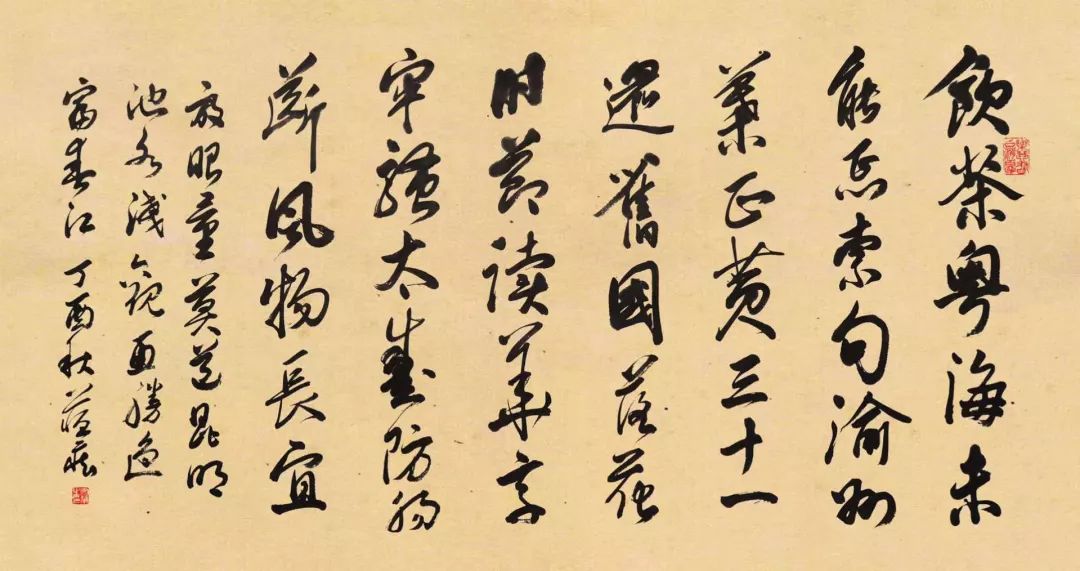 飲茶粤海未
能忘索句渝州
葉正黄三十一
還舊國落花
时節读華章
牢騷太盛防腸
断風物長宜
放眼量莫道昆明
池水淺觀魚勝過
富春江 丁酉秋